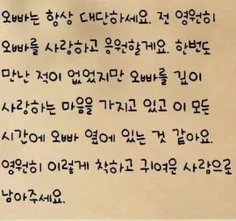 오빠는 항상 대단하세요. 전 영원히
오빠를 사랑하고 응원할게요. 한번도
만난 적이 없었지만 오빠를 깊이
사랑하는 마음을 가지고 있고 이 모든
시간에 오빠 옆에 있는 것 같아요.
영원히 이렇게 착하고 귀여운 사람으로
남아주세요.